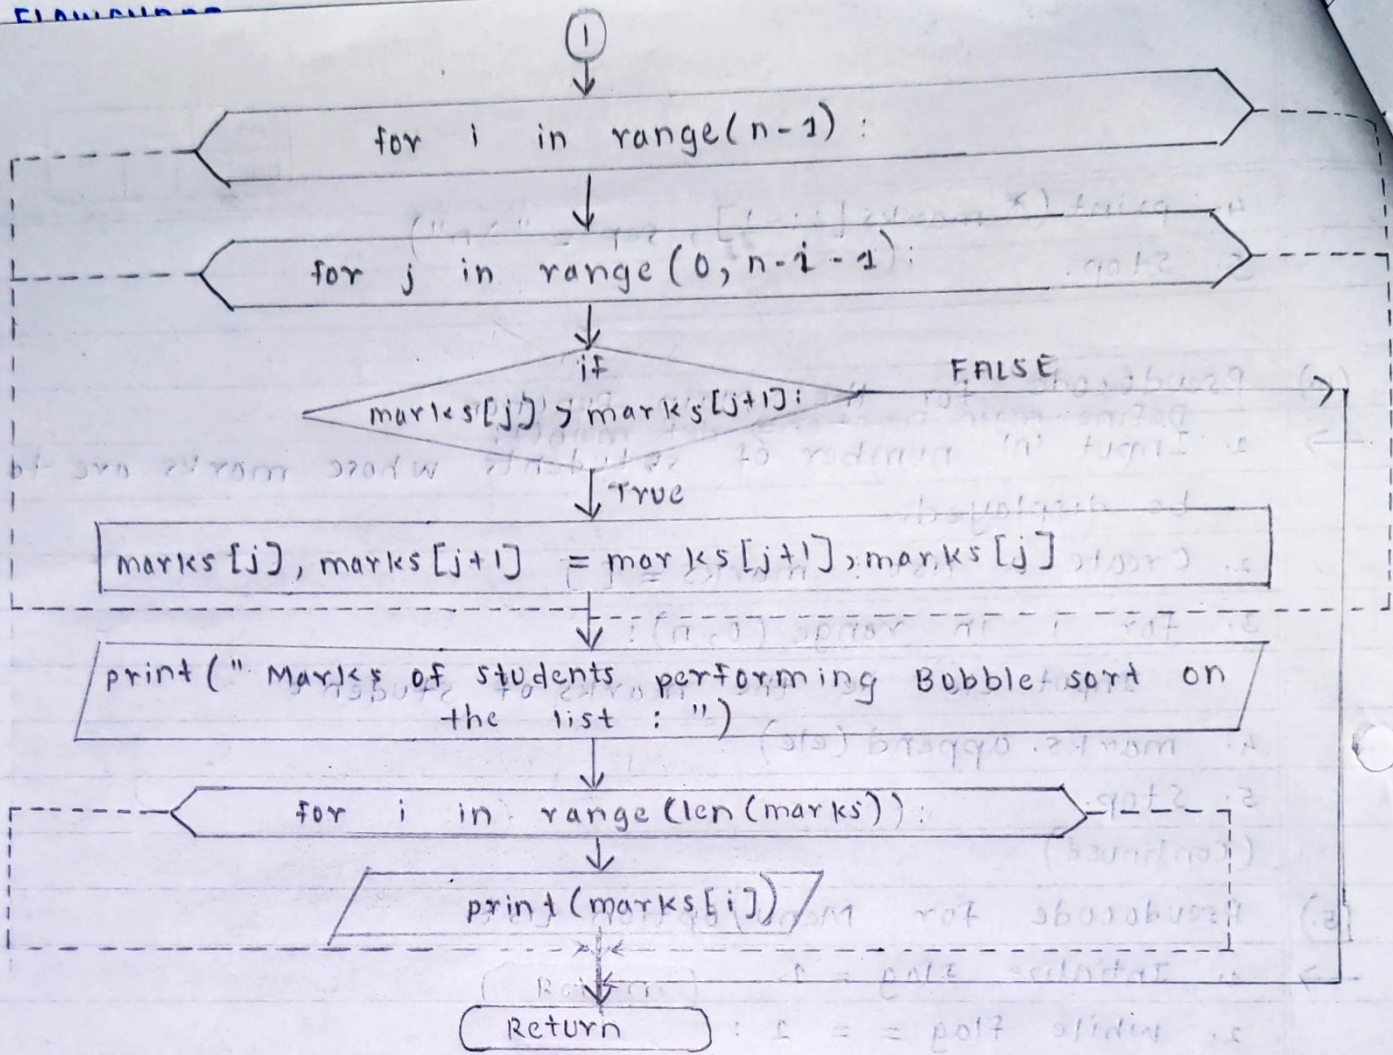 1
for i in range(n-1) :
for j in range (0, n-i-1):
if
marks[j] > marks[j+1]:
FALSE
True
marks[j], marks[j+1] = marks[j+1], marks[j]
print(" Marks of students performing Bubble sort on
the list : ")
for i in range (len (marks)) :
print (marks[i])
Return